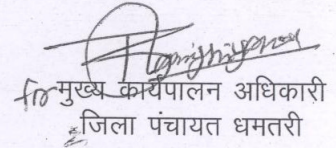 for मुख्य कार्यपालन अधिकारी
जिला पंचायत धमतरी